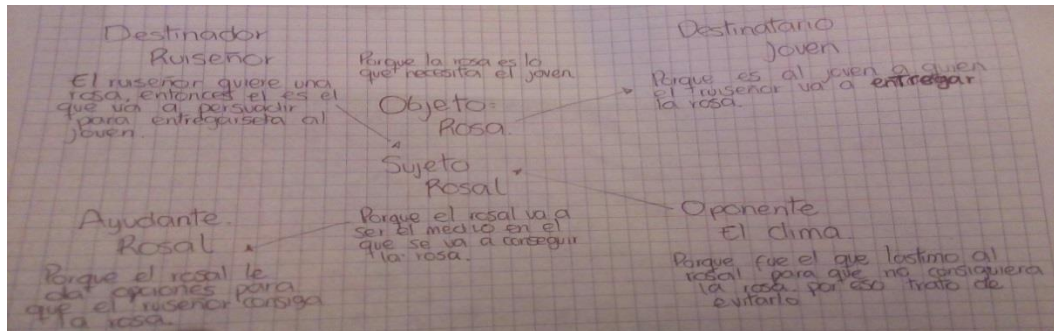 Destinador
Ruiseñor
El ruiseñor quiere una
rosa, entonces el es el
que va a persuadir
para entregarsela al
joven.
Porque la rosa es lo
que necesita el joven
Objeto:
Rosa.
Destinatario
Joven
Porque es al joven a quien
el ruiseñor va a entregar
la rosa.
Sujeto
Rosal
Porque el rosal va a
ser el medio en el
que se va a conseguir
la rosa.
Ayudante.
Rosal
Porque el rosal le
da opciones para
que el ruiseñor consiga
la rosa.
Oponente
El clima
Porque fue el que lastimo al
rosal para que no consiguiera
la rosa por eso trato de
evitarlo